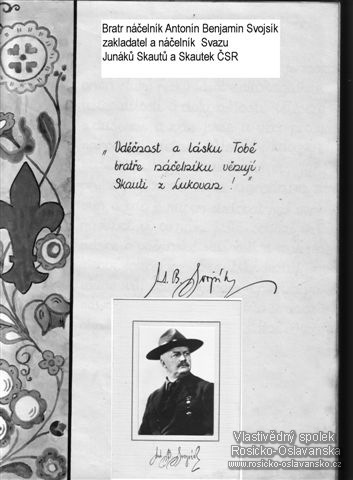 Bratr náčelník Antonín Benjamin Svojsík
zakladatel a náčelník Svazu
Junáků Skautů a Skautek ČSR
„Vděčnost a lásku Tobě
bratře náčelníku věnují
Skauti z Lukovan!"
Ant. B. Svojsík
Ant. B. Svojsík
Vlastivědný spolek
Rosicko-Oslavanska
www.rosicko-oslavansko.cz